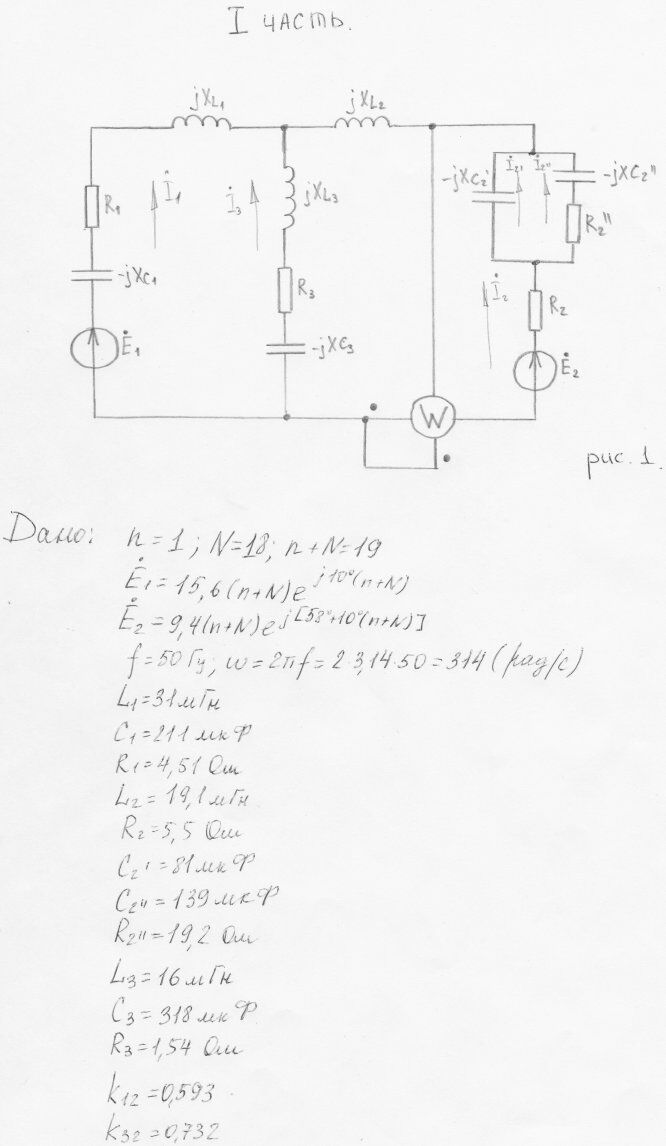 I часть.
jXL1
jXL2
R1
İ1
İ3
jXL3
-jXC2'
İ2'
İ2''
-jXC2''
R2''
-jXC1
R3
İ2
R2
Ė1
-jXC3
Ė2
W
рис. 1.
Дано: n=1; N=18; n+N=19
Ė1=15,6(n+N)e^j10°(n+N)
Ė2=9,4(n+N)e^j[58°+10°(n+N)]
f=50 Гц; w=2πf=2·3,14·50=314 (рад/с)
L1=31 мГн
C1=211 мкФ
R1=4,51 Ом
L2=19,1 мГн
R2=5,5 Ом
C2'=81 мкФ
C2''=139 мкФ
R2''=19,2 Ом
L3=16 мГн
C3=318 мкФ
R3=1,54 Ом
k12=0,593
k32=0,732